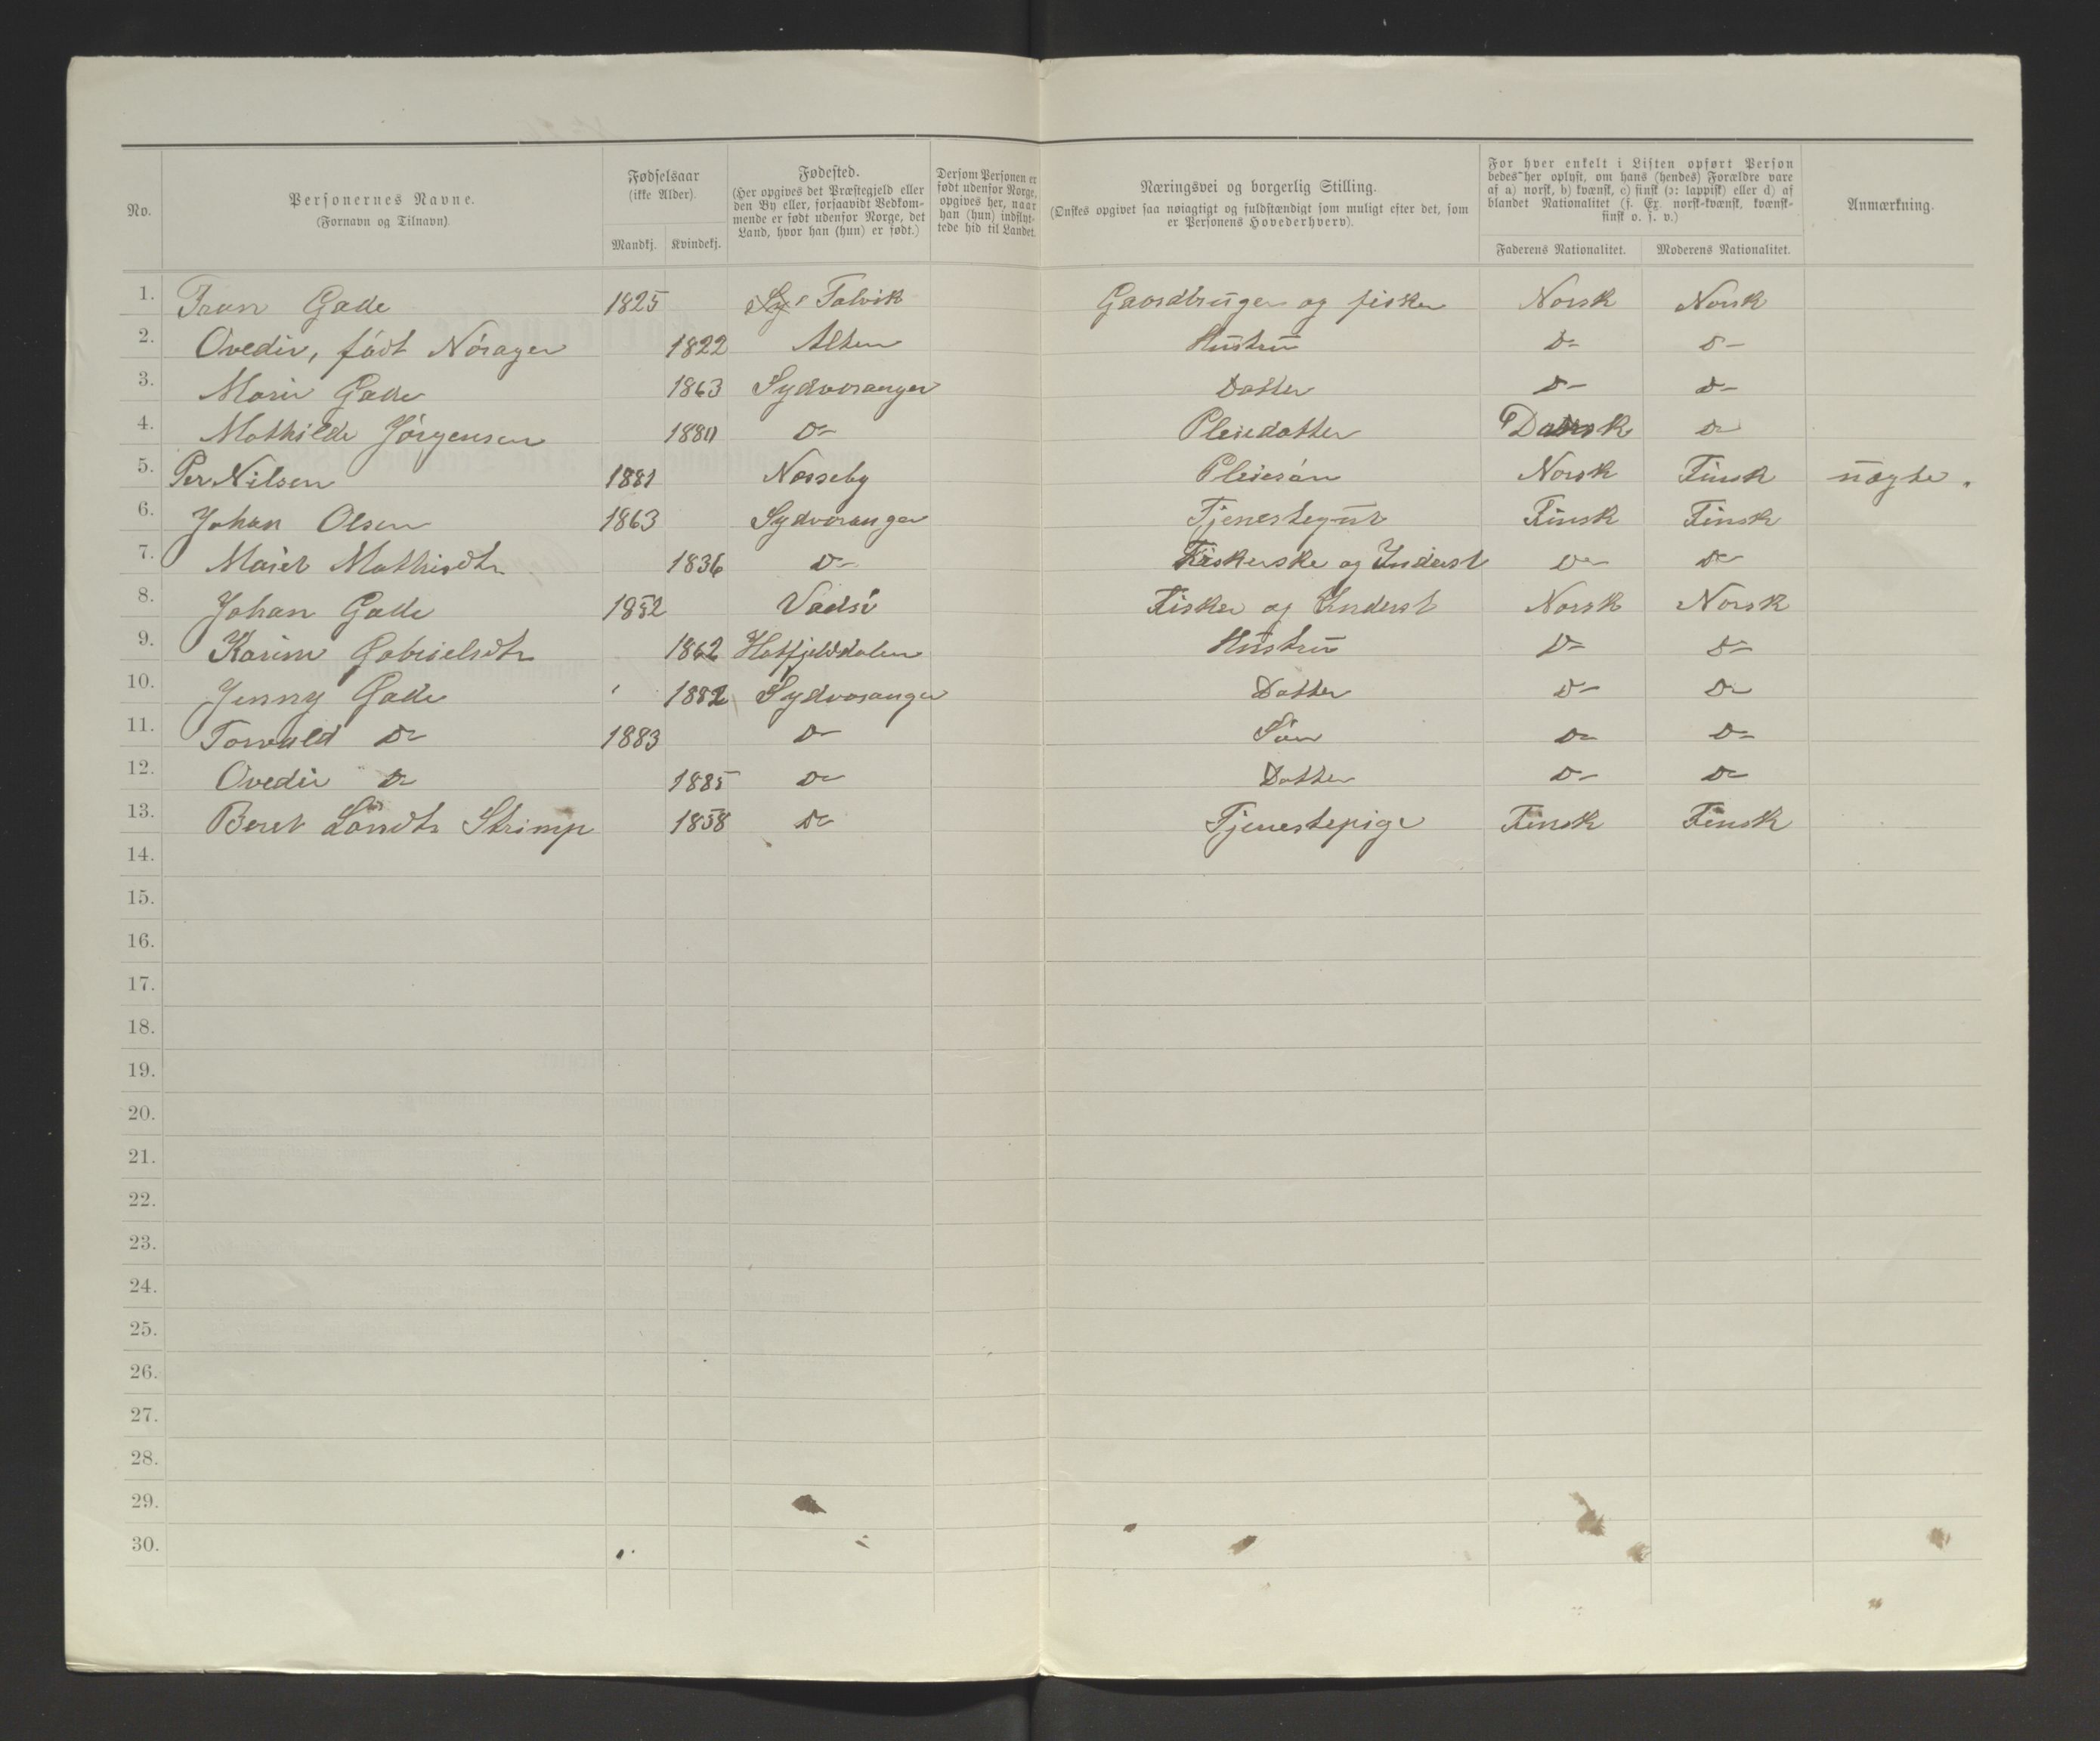 No.
Personernes Navne.
(Fornavn og Tilnavn).
Fødselsaar
(ikke Alder).
Mandkj. Kvindekj.
Fødested.
(Her opgives det Præstegjeld eller
den By eller, forsaavidt Vedkom-
mende er født udenfor Norge, det
Land, hvor han (hun) er født.)
Dersom Personen er
født udenfor Norge,
opgives her, naar
han (hun) indflyt-
tede hid til Landet.
Næringsvei og borgerlig Stilling.
(Ønskes opgivet saa nøiagtigt og fuldstændigt som muligt efter det, som
er Personens Hovederhverv).
For hver enkelt i Listen opført Person
bedes her oplyst, om hans (hendes) Forældre vare
af a) norsk, b) kvænsk, c) finsk (ɔ: lappisk) eller d) af
blandet Nationalitet (f. Ex. norsk-kvænsk, kvænsk-
finsk o. s. v.)
Faderens Nationalitet. Moderens Nationalitet.
Anmærkning.
1. Gade 1825 Talvik Gaardbruger og fisker Norsk Norsk
2. Ovedie, født Nørager 1822 Alten Hustru D- D-
3. Marie Gade 1863 Sydvaranger Datter D- D-
4. Mathilde Jørgensen 1880 D- Pleiedatter Dansk D-
5. Per Nilsen 1881 Næsseby Pleiesøn Norsk Finsk uægte.
6. Johan Olsen 1863 Sydvaranger Tjenestegut Finsk Finsk
7. Marit Mathisdtr 1836 D- Fiskerske og Inderst D- D-
8. Johan Gade 1852 Vadsø Fisker og Inderst Norsk Norsk
9. Karine Gabrielsdtr 1862 Hatfjelddalen Hustru D- D-
10. Jenny Gade 1882 Sydvaranger Datter D- D-
11. Torvald D- 1883 D- Søn D- D-
12. Ovedie D- 1885 D- Datter D- D-
13. Beret Strimp 1858 D- Tjenestepige Finsk Finsk
14.
15.
16.
17.
18.
19.
20.
21.
22.
23.
24.
25.
26.
27.
28.
29.
30.